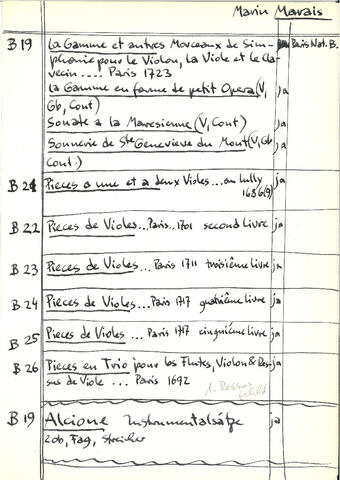 Marin Marais
B 19 La Gamme et autres Morceaux de Sim- Paris Nat. B.
phonie pour le Violon, la Viole et le Cla-
vecin .... Paris 1723
La Gamme en forme de petit Opera (V, ja
Gb, Cont)
Sonate a la Maresienne (V, Cont) ja
Sonnerie de Ste Genevieve du Mont (V, Gb ja
Cont.)
B 21 Pieces a une et a deux Violes... ja
1686(9)
B 22 Pieces de Violes... Paris. 1701 second livre ja
B 23 Pieces de Violes... Paris 1711 troisième livre ja
B 24 Pieces de Violes... Paris 1717 quatrième livre ja
B 25 Pieces de Violes... Paris 1717 cinquième livre ja
B 26 Pieces en Trio pour les Flutes, Violon & Des- ja
sus de Viole ... Paris 1692
1. Dessus
fehlt
B 19 Alcione Instrumentalsätze ja
2Ob, Fag, Streicher